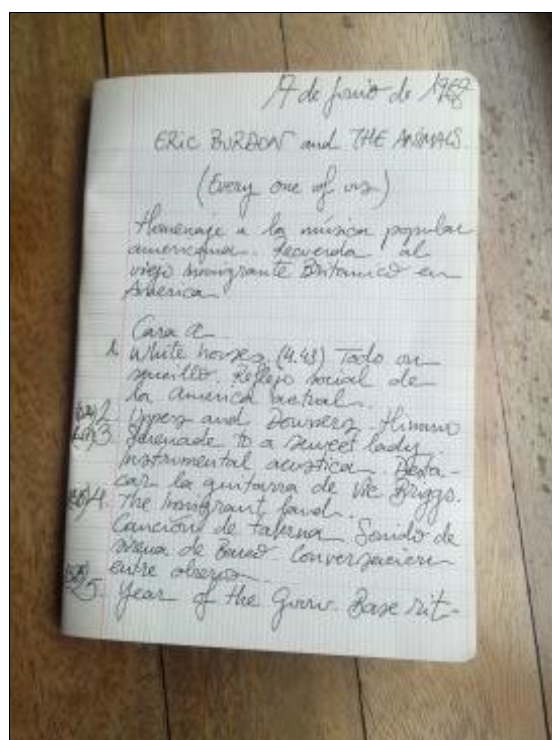 17 de junio de 1968
ERIC BURDON and THE ANIMALS
(Every one of us)
Homenaje a la música popular
americana. Recuerda al
viejo inmigrante Britanico en
America
Cara a
1. White houses. (4.43) Todo un
sencillo. Reflejo social de
la America actual.
2. Uppers and Downers. Himno
3. Serenade to a sweet lady.
Instrumental acustica. Desta-
car la guitarra de Vic Briggs.
4. The Inmigrant land.
Canciones de taberna. Sonido de
sirena de Barco. Conversacion
entre obreros
5. Year of the Guru. Base rit-